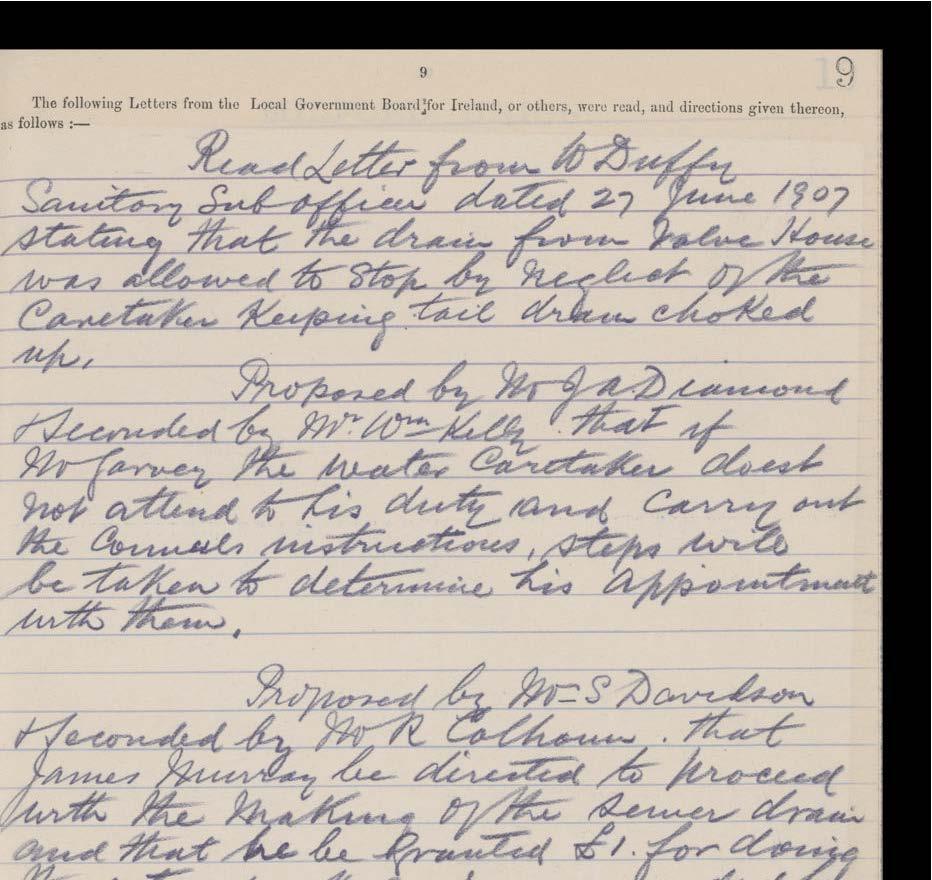 9
19
The following Letters from the Local Government Board for Ireland, or others, were read, and directions given thereon,
as follows :—
Read Letter from W Duffy
Sanitory Sub officer dated 27 June 1907
stating that the drain from Valve House
was allowed to Stop by Neglect of the
Caretaker Keeping tail drain choked
up.
Proposed by Mr J A Diamond
& Seconded by Mr. Wm Kelly that if
Mr Garvey the water Caretaker doest
not attend to his duty and Carry out
the Councils instructions, steps will
be taken to determine his appointment
with them.
Proposed by Mr S Davidson
& Seconded by Mr R Calhoun. that
James Murray be directed to proceed
with the Making of the sewer drain
and that he be Granted £1. for doing